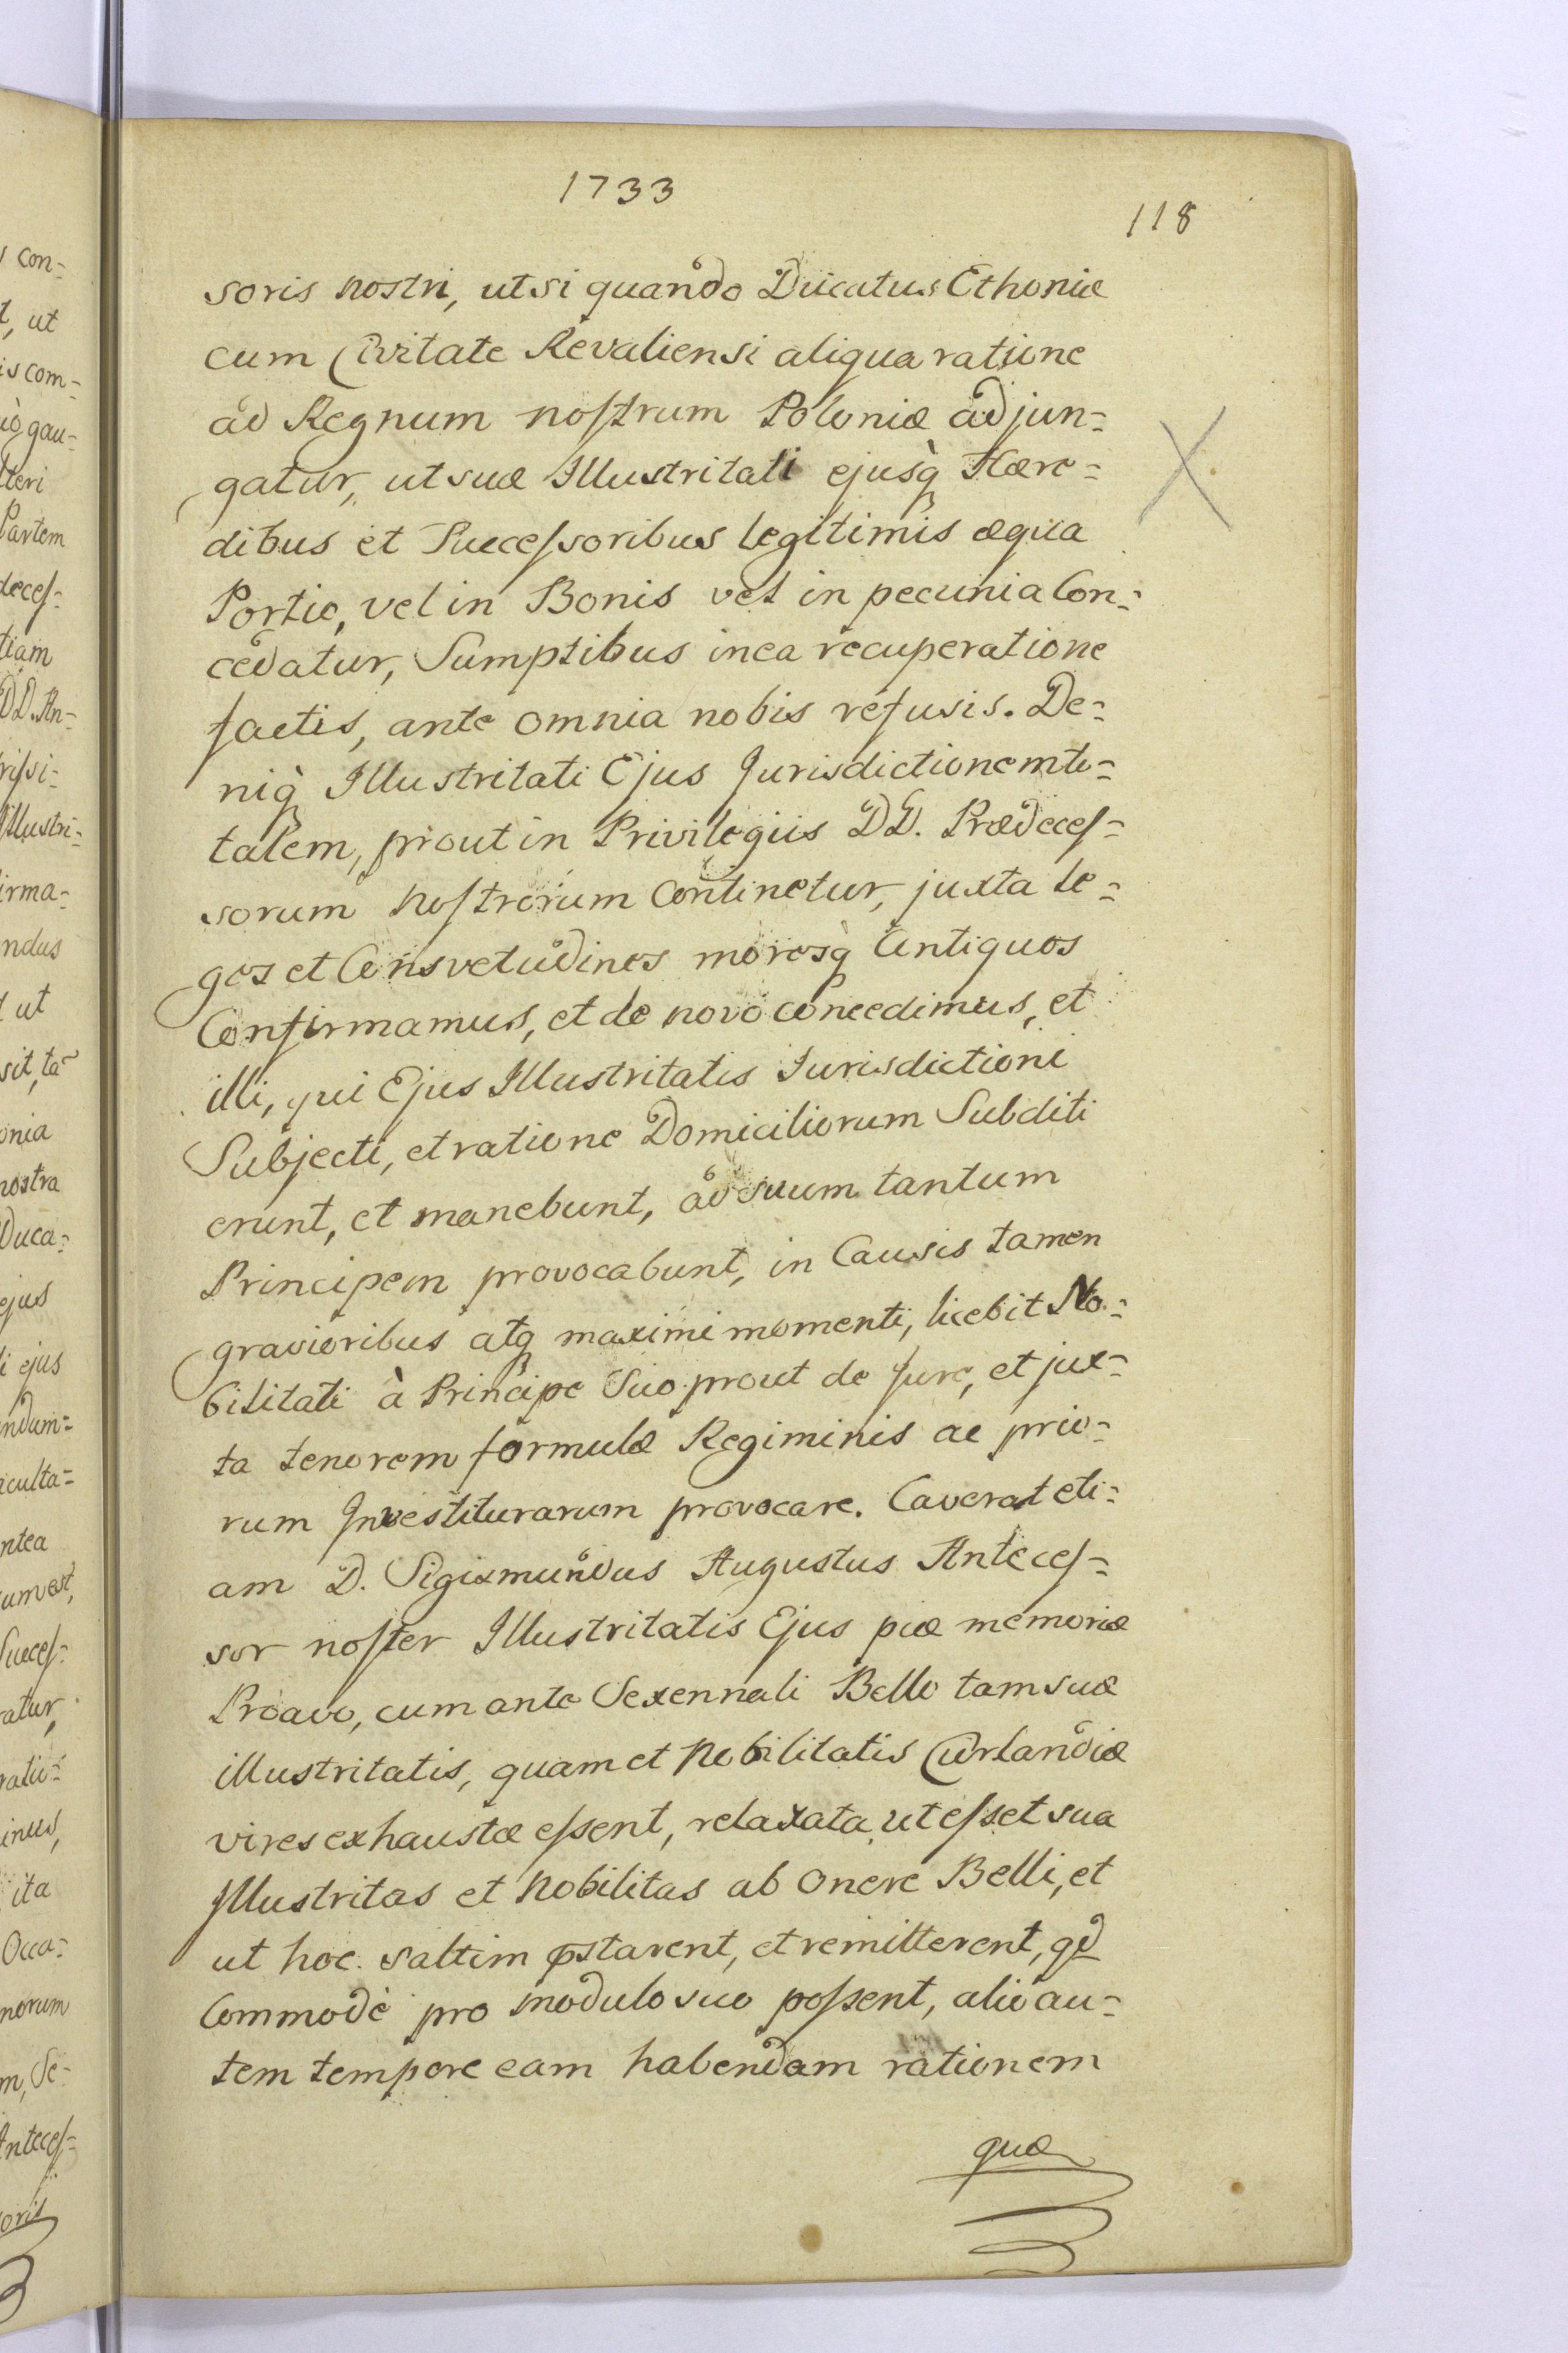 1733
118
soris nostri, ut si quando Ducatus Ethoniæ
cum Civitate Revaliensi aliqua ratione
ad Regnum nostrum Poloniæ adjun=
gatur, ut suæ Illustritati ejusq̀ Hære=
dibus et Successoribus legitimis æqua
Portio, vel in Bonis vel in pecunia Con=
cedatur, Sumptibus in ea recuperatione
factis, ante omnia nobis refusis. De=
niq̀ Illustritati Ejus Jurisdictionem to=
talem, prout in Privilegiis DD. Prædeces=
sorum nostrorum Continetur, juxta le=
ges et Consvetudines moresq̀ Antiquos
Confirmamus, et de novo concedimus, et
illi, qui Ejus Illustritatis Jurisdictioni
Subjecti, et ratione Domiciliorum Subditi
erunt, et manebunt, ad suum tantum
Principem provocabunt, in Causis tamen
gravioribus atq̀ maximi momenti, licebit No=
bilitati à Principe Suo prout de Jure, et jux=
ta tenorem formulæ Regiminis ac prio=
rum Investiturarum provocare. Caverat eti=
am D. Sigismundus Augustus Anteces=
sor noster Illustritatis Ejus piæ memoriæ
Proavo, cum ante Sexennali Bello tam suæ
illustritatis, quam et Nobilitatis Curlandiæ
vires exhaustæ essent, relaxata ut esset sua
Illustritas et Nobilitas ab Onere Belli, et
ut hoc saltim p̄starent, et remitterent, qd
Commodè pro modulo suo possent, alio au=
tem tempore eam habendam rationem
quæ
con=
, ut
is com=
iò gau=
lteri
Partem
deces=
tiam
DD. An=
rissi=
Illustri=
irma=
ndus
ut
sit, ta~
onia
nostra
Duca=
ejus
i ejus
ndum=
aculta=
ntea
um est,
Succes=
ratur,
ratio=
inus,
ita
Occa=
norum
m, Se=
Anteces=
soris